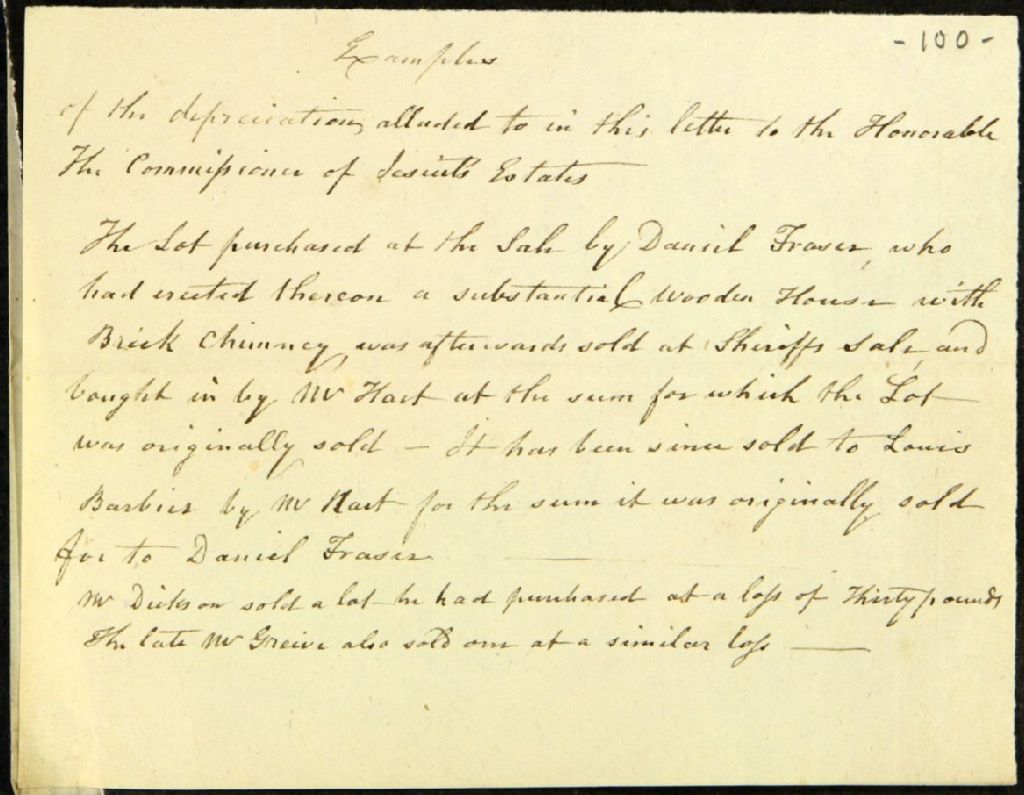 - 100 -
Examples
of the depreciation, alluded to in this letter to the Honorable
The Commissioner of Jesuits Estates
The Lot purchased at the Sale by Daniel Fraser, who
had erected thereon a substantial Wooden House with
Brick Chimney, was afterwards sold at Sheriffs Sale, and
bought in by Mr Hart at the sum for which the Lot
was originally sold — It has been since sold to Louis
Barbier by Mr Hart for the sum it was originally sold
for to Daniel Fraser
Mr Dickson sold a lot he had purchased at a loss of Thirty pounds
The late Mr Greive also sold one at a similar loss —